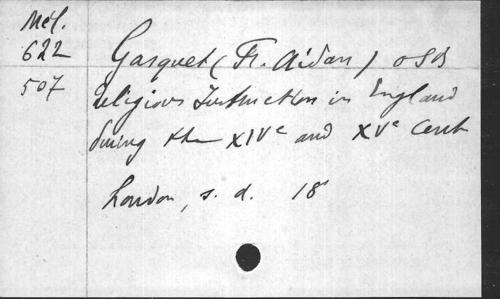 Mél.
622
507
Gasquet (Fr. Aidan) OSB
Religious Instruction in England
during the XIVe and XVe Cent
London, s. d. 18°